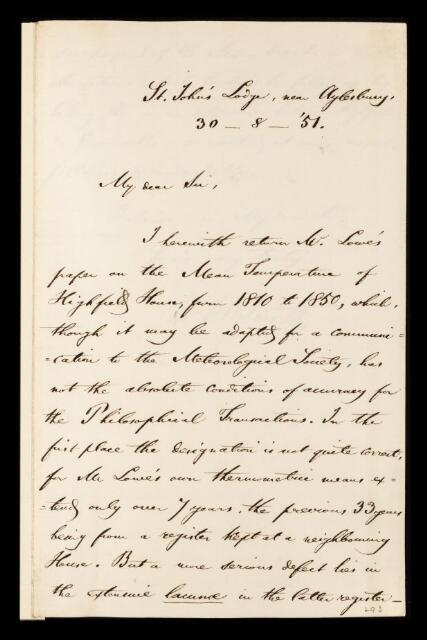 St. John's Lodge, near Aylesbury.
30 — 8 — '51.
My dear Sir,
I herewith return Mr. Lowe's
paper on the Mean Temperature of
Highfield House, from 1810 to 1850, which,
though it may be adapted for a communi=
=cation to the Meteorological Society, has
not the absolute conditions of accuracy for
the Philosophical Transactions. In the
first place the designation is not quite correct,
for Mr Lowe's own thermometric means ex=
=tend only over 7 years, the previous 33 years
being from a register kept at a neighbouring
House. But a more serious defect lies in
the extensive lacunæ in the latter register—